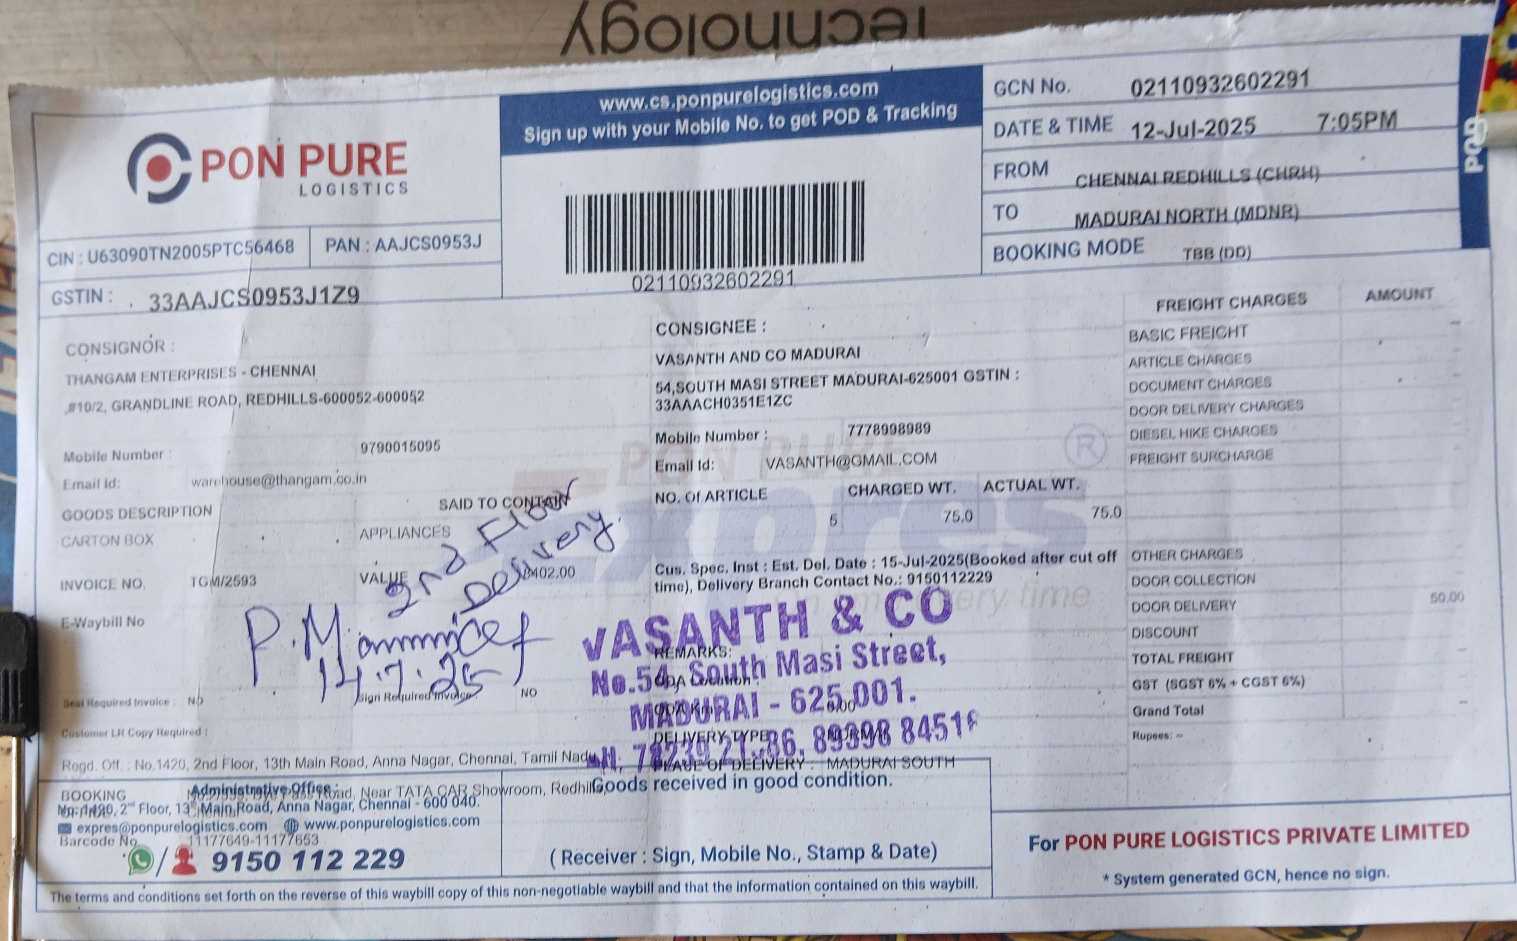 Technology
www.cs.ponpurelogistics.com
Sign up with your Mobile No. to get POD & Tracking
GCN No. 02110932602291
DATE & TIME 12-Jul-2025 7:05PM
FROM CHENNAI REDHILLS (CHRH)
TO MADURAI NORTH (MDNR)
BOOKING MODE TBB (DD)
POD
PON PURE
LOGISTICS
CIN : U63090TN2005PTC56468 PAN : AAJCS0953J
GSTIN : 33AAJCS0953J1Z9
02110932602291
CONSIGNOR :
THANGAM ENTERPRISES - CHENNAI
,#10/2, GRANDLINE ROAD, REDHILLS-600052-600052
Mobile Number : 9790015095
Email Id: warehouse@thangam.co.in
GOODS DESCRIPTION SAID TO CONTAIN
CARTON BOX APPLIANCES
INVOICE NO. TGM/2593 VALUE 8402.00
E-Waybill No
2nd Floor
Delivery.
14.7.25
Seal Required Invoice : NO Sign Required Invoice NO
Customer LR Copy Required :
CONSIGNEE :
VASANTH AND CO MADURAI
54,SOUTH MASI STREET MADURAI-625001 GSTIN :
33AAACH0351E1ZC
Mobile Number : 7778998989
Email Id: VASANTH@GMAIL.COM
NO. Of ARTICLE CHARGED WT. ACTUAL WT.
5 75.0 75.0
Cus. Spec. Inst : Est. Del. Date : 15-Jul-2025(Booked after cut off
time), Delivery Branch Contact No.: 9150112229
PON PURE
Expres
delivery time
VASANTH & CO
REMARKS:
No.54, South Masi Street,
MADURAI - 625 001.
DELIVERY TYPE NORMAL
89398 8451
PLACE OF DELIVERY : MADURAI SOUTH
FREIGHT CHARGES AMOUNT
BASIC FREIGHT
ARTICLE CHARGES
DOCUMENT CHARGES
DOOR DELIVERY CHARGES
DIESEL HIKE CHARGES
FREIGHT SURCHARGE
OTHER CHARGES
DOOR COLLECTION
DOOR DELIVERY 50.00
DISCOUNT
TOTAL FREIGHT
GST (SGST 6% + CGST 6%)
Grand Total
Rupees: --
Regd. Off. : No.1420, 2nd Floor, 13th Main Road, Anna Nagar, Chennai, Tamil Nadu
BOOKING Road, Near TATA CAR Showroom, Redhills,
Administrative Office:
No: 1420, 2nd Floor, 13th Main Road, Anna Nagar, Chennai - 600 040.
expres@ponpurelogistics.com www.ponpurelogistics.com
Barcode No 11177649-11177653
9150 112 229
Goods received in good condition.
(Receiver : Sign, Mobile No., Stamp & Date)
For PON PURE LOGISTICS PRIVATE LIMITED
* System generated GCN, hence no sign.
The terms and conditions set forth on the reverse of this waybill copy of this non-negotiable waybill and that the information contained on this waybill.